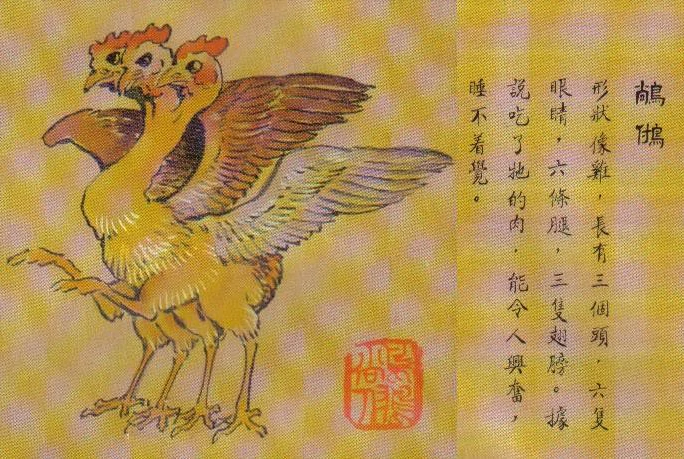 𪁺𩿧
形狀像雞，長有三個頭，六隻
眼睛，六條腿，三隻翅膀。據
說吃了牠的肉，能令人興奮，
睡不着覺。